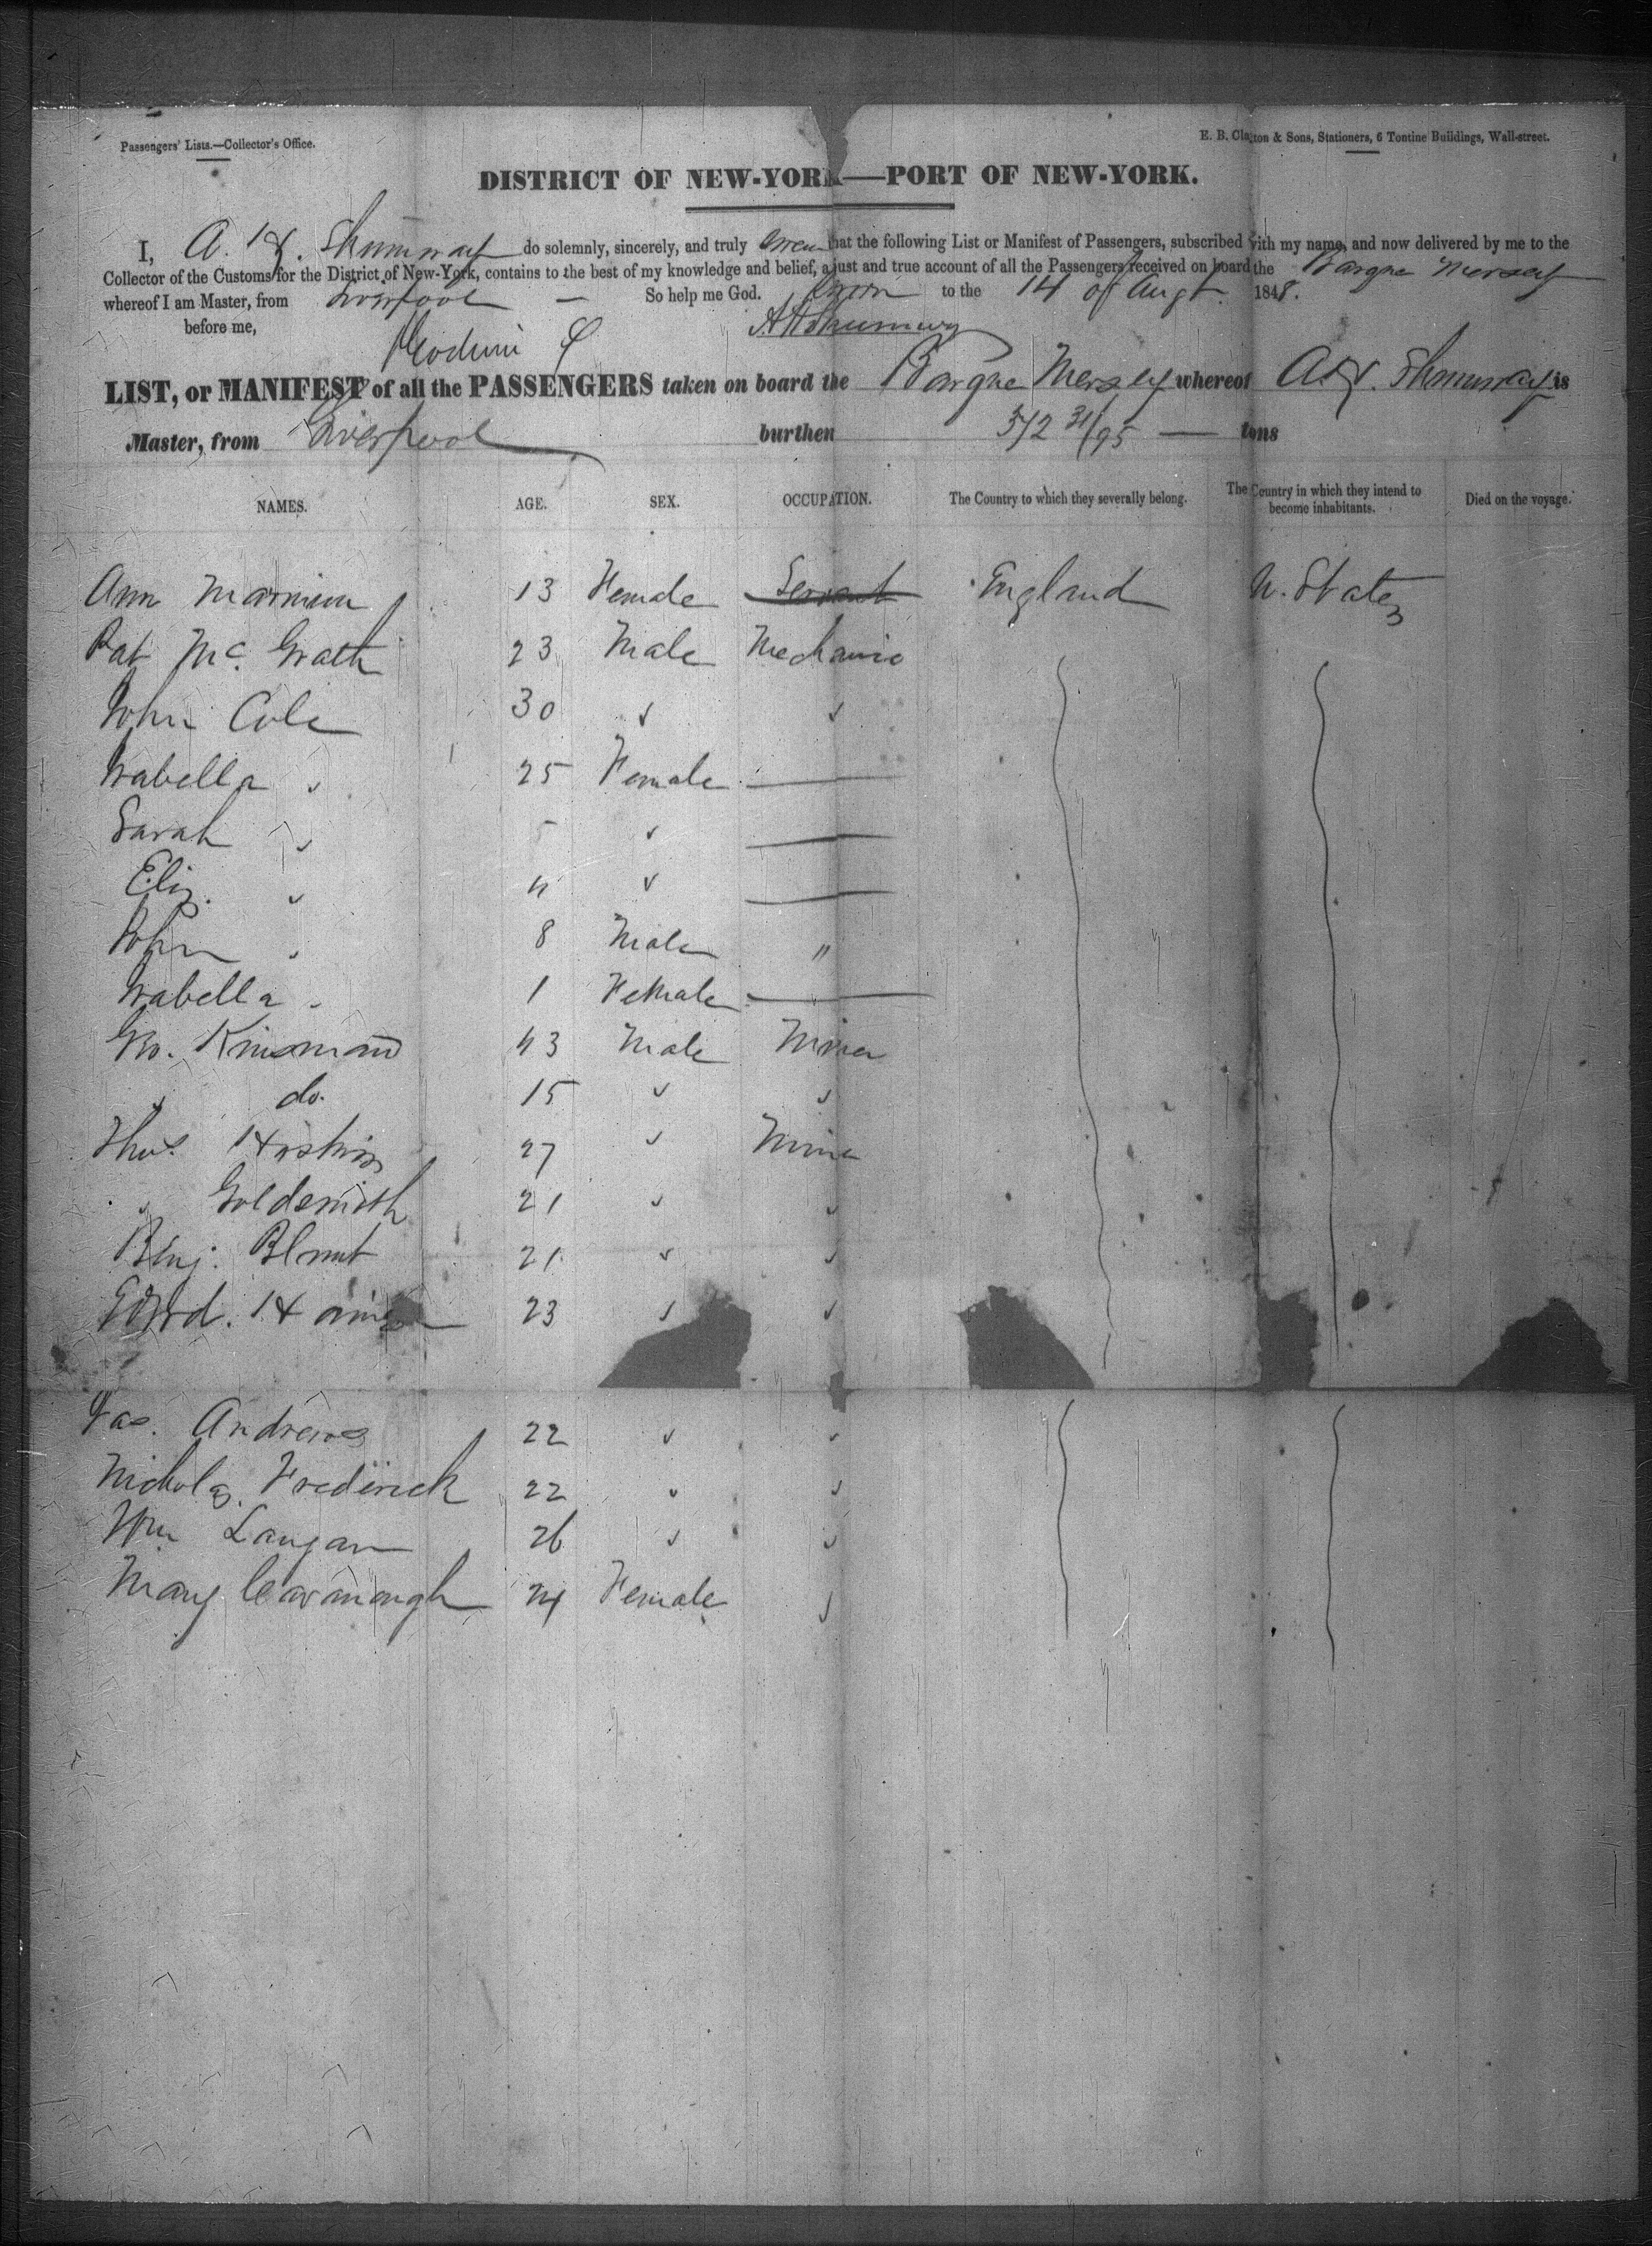 Passengers' Lists.—Collector's Office.
E. B. Clayton & Sons, Stationers, 6 Tontine Buildings, Wall-street.
DISTRICT OF NEW-YORK—PORT OF NEW-YORK.
I, A. H. Shumway do solemnly, sincerely, and truly swear that the following List or Manifest of Passengers, subscribed with my name, and now delivered by me to the
Collector of the Customs for the District of New-York, contains to the best of my knowledge and belief, a just and true account of all the Passengers received on board the Barque Mersey
whereof I am Master, from Liverpool — So help me God. Sworn to the 14 of Augt. 1848.
before me, A H Shumway
LIST, or MANIFEST of all the PASSENGERS taken on board the Barque Mersey whereof A. H. Shumway is
Master, from Liverpool burthen 312 31/95 — tons
NAMES. AGE. SEX. OCCUPATION. The Country to which they severally belong. The Country in which they intend to become inhabitants. Died on the voyage.
Ann 13 Female Servant England U. States
Pat Mc. Grath 23 Male Mechanic
John Cole 30 " "
Isabella " 25 Female —
Sarah " 5 " —
Eliz. " 4 " —
John " 8 Male "
Isabella " 1 Female —
Geo. Kinsman 43 Male Miner
" do. 15 " "
Thos. Hoskin 27 " Miner
" Goldsmith 21 " "
Benj. Blunt 21 " "
Edwd. 23 " "
Jas. Andrews 22 " "
Nicholas Frederick 22 " "
Wm Langan 26 " "
Mary Cavanaugh 24 Female "